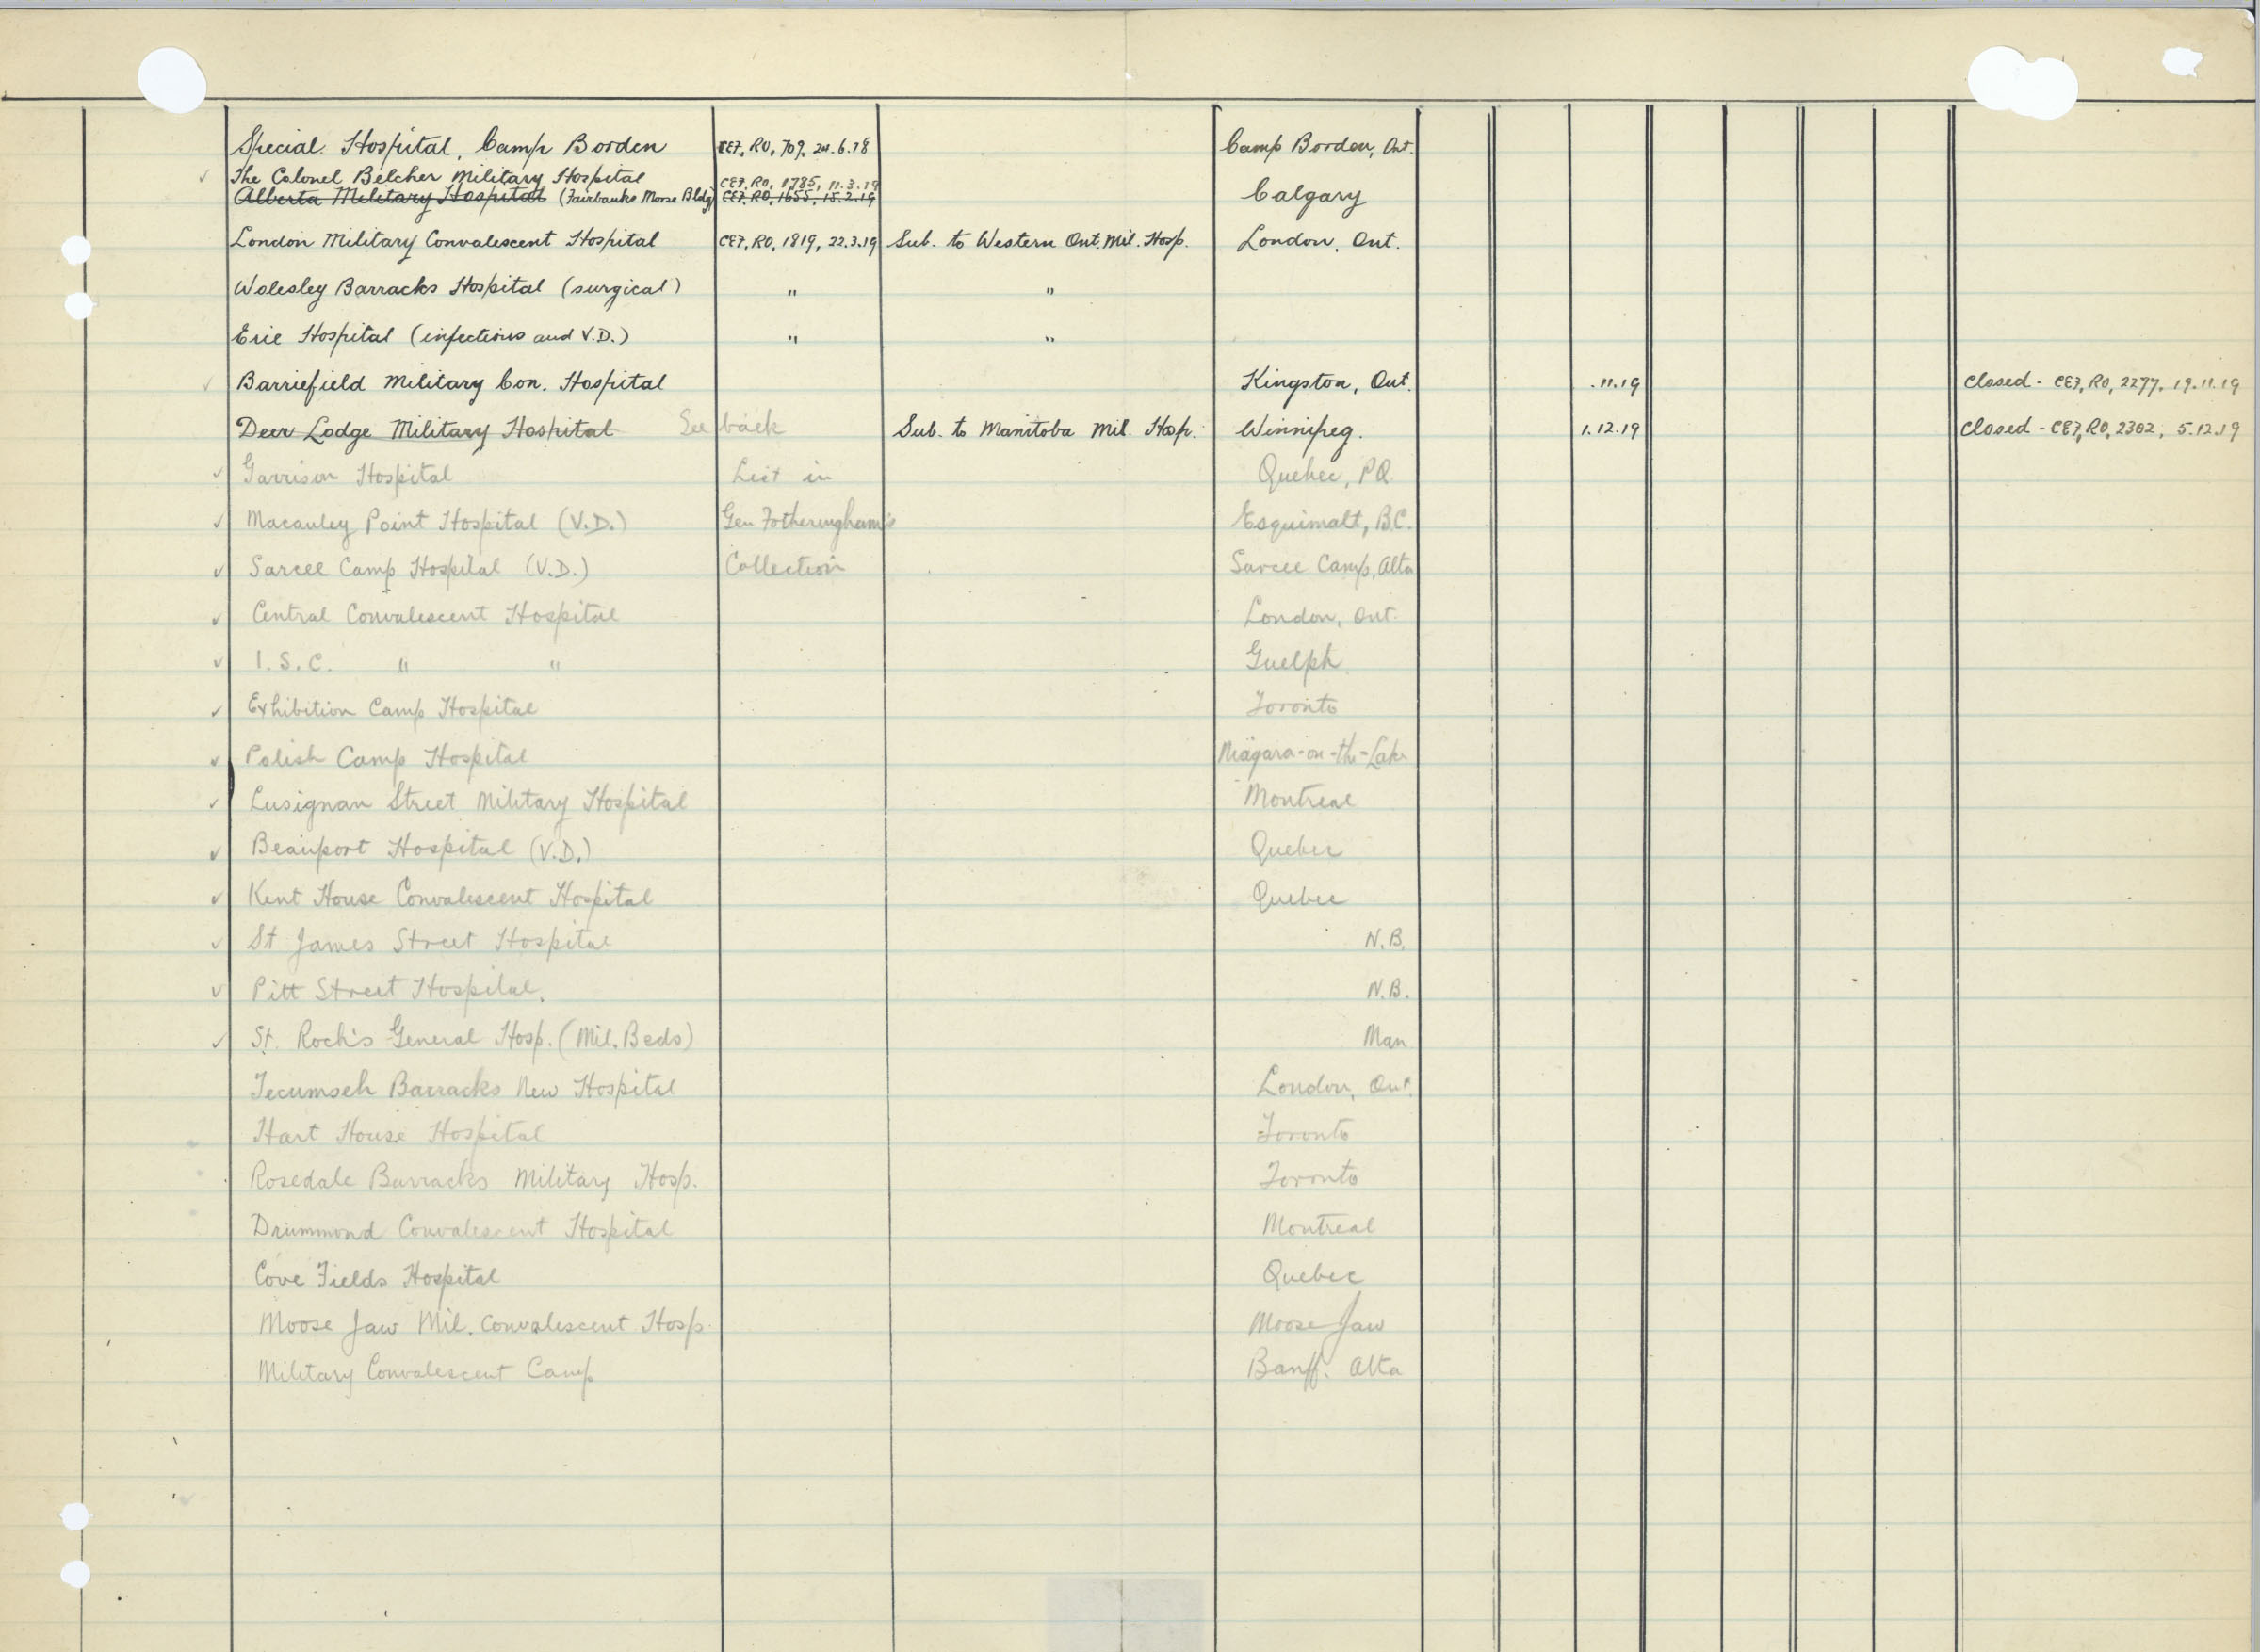 Special Hospital, Camp Borden CEF, RO, 709, 24.6.18 Camp Borden, Ont.
The Colonel Belcher Military Hospital CEF, RO, 1785, 11.3.19
Alberta Military Hospital (Fairbanks Morse Bldg) CEF, RO, 1655, 15.2.19 Calgary
London Military Convalescent Hospital CEF, RO, 1819, 22.3.19 Sub. to Western Ont. Mil. Hosp. London, Ont.
Wolesley Barracks Hospital (surgical) " "
Erie Hospital (infectious and V.D.) " "
Barriefield Military Con. Hospital Kingston, Ont. .11.19 Closed - CEF, RO, 2277, 19.11.19
Deer Lodge Military Hospital See back Sub. to Manitoba Mil. Hosp. Winnipeg. 1.12.19 Closed - CEF, RO, 2302, 5.12.19
✓ Garrison Hospital List in Quebec, PQ
✓ Macauley Point Hospital (V.D.) Gen Fotheringham's Esquimalt, B.C.
✓ Sarcee Camp Hospital (V.D.) Collection Sarcee Camp, Alta
✓ Central Convalescent Hospital London, Ont.
✓ I.S.C. " " Guelph
✓ Exhibition Camp Hospital Toronto
✓ Polish Camp Hospital Niagara-on-the-Lake
✓ Lusignan Street Military Hospital Montreal
✓ Beauport Hospital (V.D.) Quebec
✓ Kent House Convalescent Hospital Quebec
✓ St James Street Hospital N.B.
✓ Pitt Street Hospital. N.B.
✓ St. Roch's General Hosp. (Mil. Beds) Man
Tecumseh Barracks New Hospital London, Ont.
Hart House Hospital Toronto
Rosedale Barracks Military Hosp. Toronto
Drummond Convalescent Hospital Montreal
Cove Fields Hospital Quebec
Moose Jaw Mil. Convalescent Hosp. Moose Jaw
Military Convalescent Camp Banff. Alta